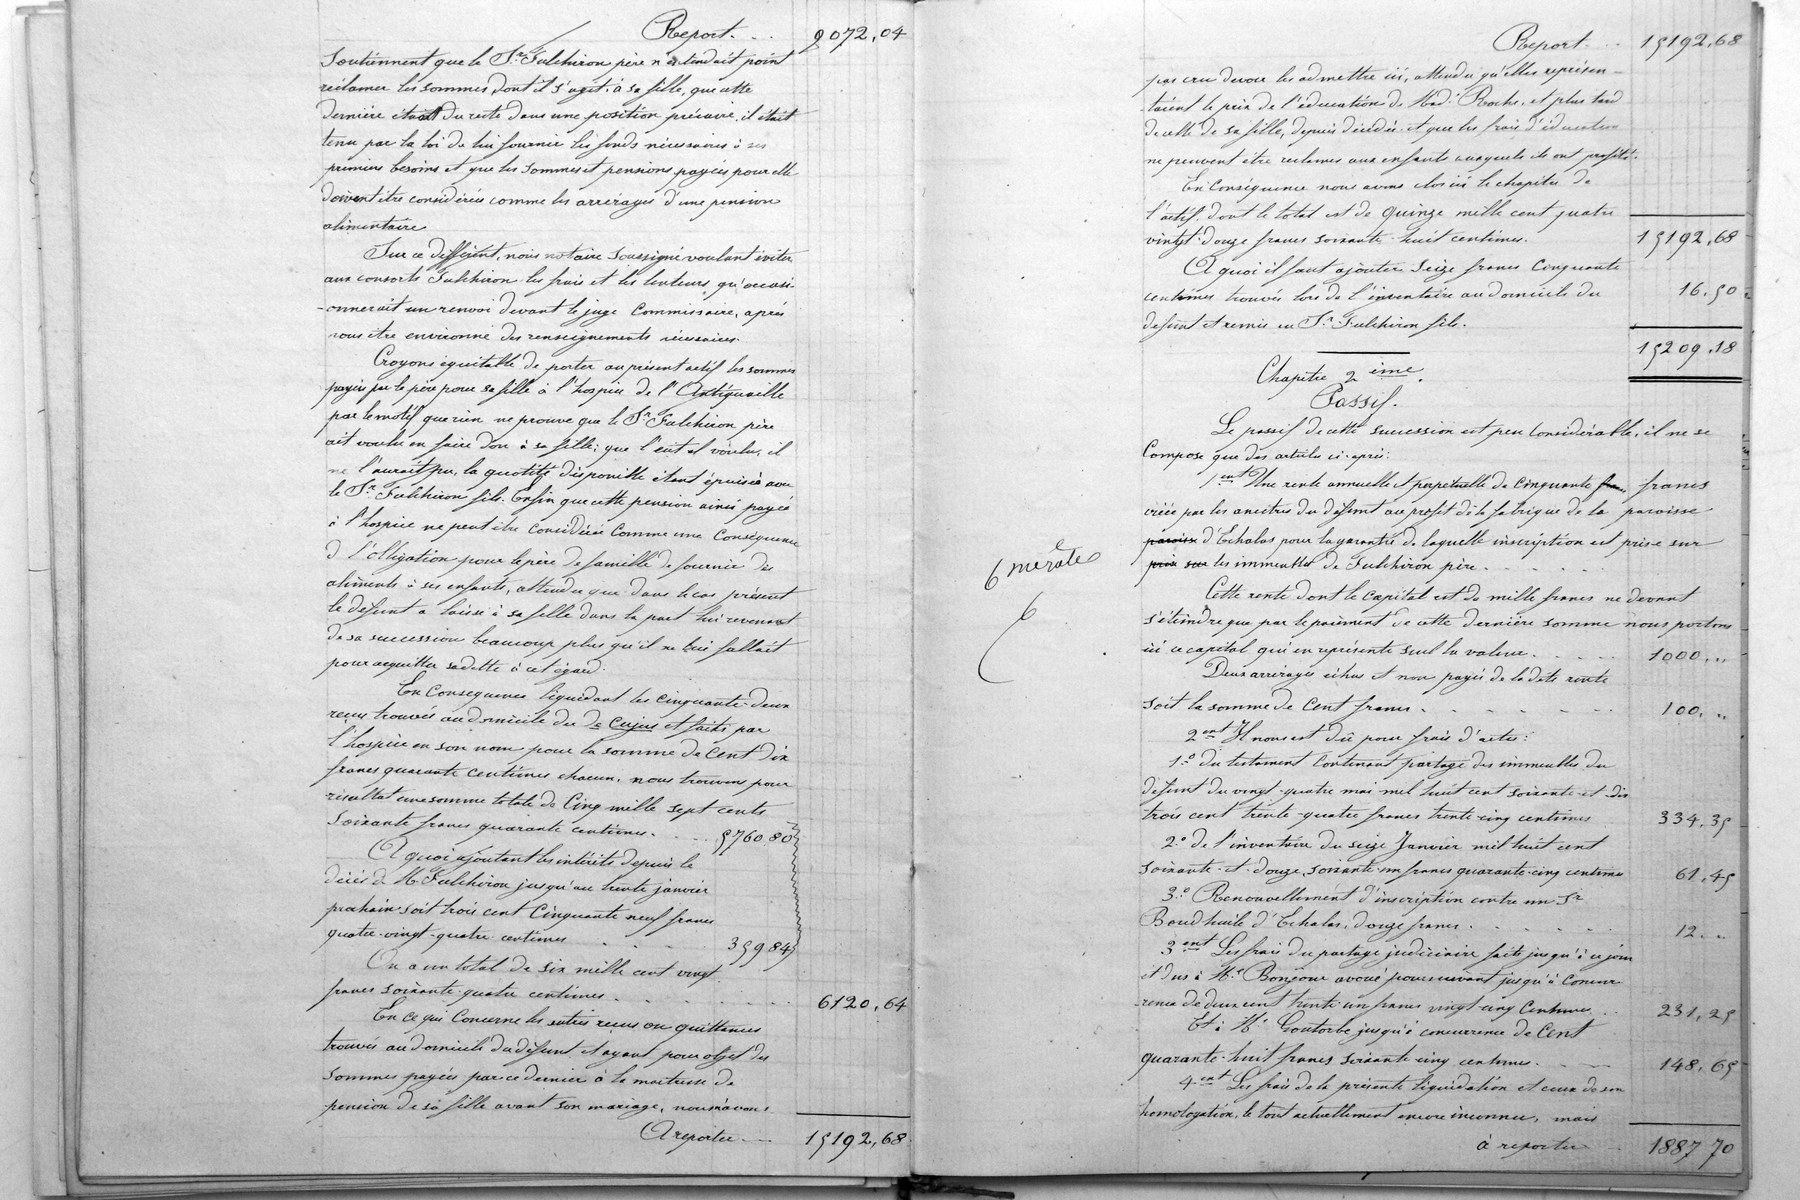 Report. . . 9072,04
Soutiennent que le Sr Fulchiron père n'entendait point
réclamer les sommes dont il s'agit à sa fille, que cette
dernière était du reste dans une position précaire, il était
tenu par la loi de lui fournir les fonds nécessaires à ses
premiers besoins et que les sommes et pensions payées pour elle
doivent être considérées comme les arrérages d'une pension
alimentaire
Sur ce différent, nous notaire soussigné voulant éviter
aux consorts Fulchiron les frais et les lenteurs qu'occasi-
-onnerait un renvoi devant le juge Commissaire, après
nous être environné des renseignements nécessaires.
Croyons équitable de porter au présent actif les sommes
payées par le père pour sa fille à l'hospice de l'Antiquaille
par le motif que rien ne prouve que le Sr Fulchiron père
ait voulu en faire don à sa fille; que l'eut-il voulu, il
ne l'aurait pu, la quotité disponible étant épuisée avec
le Sr Fulchiron fils. Enfin que cette pension ainsi payée
à l'hospice ne peut être considérée comme une Conséquence
de l'obligation pour le père de famille de fournir des
aliments à ses enfants, attendu que dans le cas présent
le défunt a laissé à sa fille dans la part lui revenant
de sa succession beaucoup plus qu'il ne lui fallait
pour acquitter sa dette à cet égard.
En Conséquence liquidant les cinquante-deux
reçus trouvés au domicile du de cujus et faits par
l'hospice en son nom pour la somme de Cent dix
francs quarante centimes chacun, nous trouvons pour
résultat une somme totale de Cinq mille sept cents
soixante francs quarante centimes. . . 5760 80
A quoi ajoutant les intérêts depuis le
décès de M. Fulchiron jusqu'au trente janvier
prochain soit trois cent cinquante neuf francs
quatre-vingt-quatre centimes . . . 359 84
On a un total de six mille cent vingt
francs soixante-quatre centimes. . . . 6120,64
En ce qui Concerne les autres reçus ou quittances
trouvés au domicile du défunt et ayant pour objet des
sommes payées par ce dernier à la maitresse de
pension de sa fille avant son mariage, nous n'avons
A reporter . . . 15192,68
Report. . . 15192,68
pas cru devoir les admettre ici, attendu qu'elles représen-
-taient le prix de l'éducation de Mad. Roche, et plus tard
de celle de sa fille, depuis décédée et que les frais d'éducation
ne peuvent être réclamés aux enfants auxquels ils ont profité.
En Conséquence nous avons clos ici le chapitre de
l'actif, dont le total est de quinze mille cent quatre
vingt-douze francs soixante-huit centimes. 15192,68
A quoi il faut ajouter seize francs cinquante
centimes trouvés lors de l'inventaire au domicile du 16,50
défunt et remis au Sr Fulchiron fils.
15209,18
Chapitre 2ème.
Passif.
Le passif de cette succession est peu considérable, il ne se
Compose que des articles ci-après:
1ent Une rente annuelle et perpétuelle de cinquante fran francs
créée par les ancêtres du défunt au profit de la fabrique de la paroisse
paroisse d'Echalas pour la garantie de laquelle inscription est prise sur
prise sur les immeubles de Fulchiron père. . . . .
Cette rente dont le Capital est de mille francs ne devant
s'éteindre que par le paiement de cette dernière somme nous portons
ici ce capital qui en représente seul la valeur. . . . 1000,"
Deux arrérages échus et non payés de ladte rente
soit la somme de Cent francs . . . . . 100,"
2ent Il nous est dû pour frais d'actes:
1.° du testament Contenant partage des immeubles du
défunt du vingt-quatre mai mil huit cent soixante-et-dix
trois cent trente-quatre francs trente-cinq centimes 334,35
2.° de l'inventaire du seize Janvier mil huit cent
soixante-et-douze, soixante-un francs quarante-cinq centimes 61,45
3.° Renouvellement d'inscription contre un Sr
Boudhuile d'Echalas, douze francs . . . . . 12 "
3ent Les frais du partage judiciaire faits jusqu'à ce jour
et dus à Me Bonjour avoué poursuivant jusqu'à Concur-
-rence de deux cent trente-un francs vingt-cinq Centimes . . 231,25
Et à Me Goutorbe jusqu'à concurrence de Cent
quarante-huit francs soixante-cinq centimes . . . 148,65
4ent Les frais de la présente liquidation et ceux de son
homologation, le tout actuellement encore inconnu, mais
à reporter . . . 1887 70